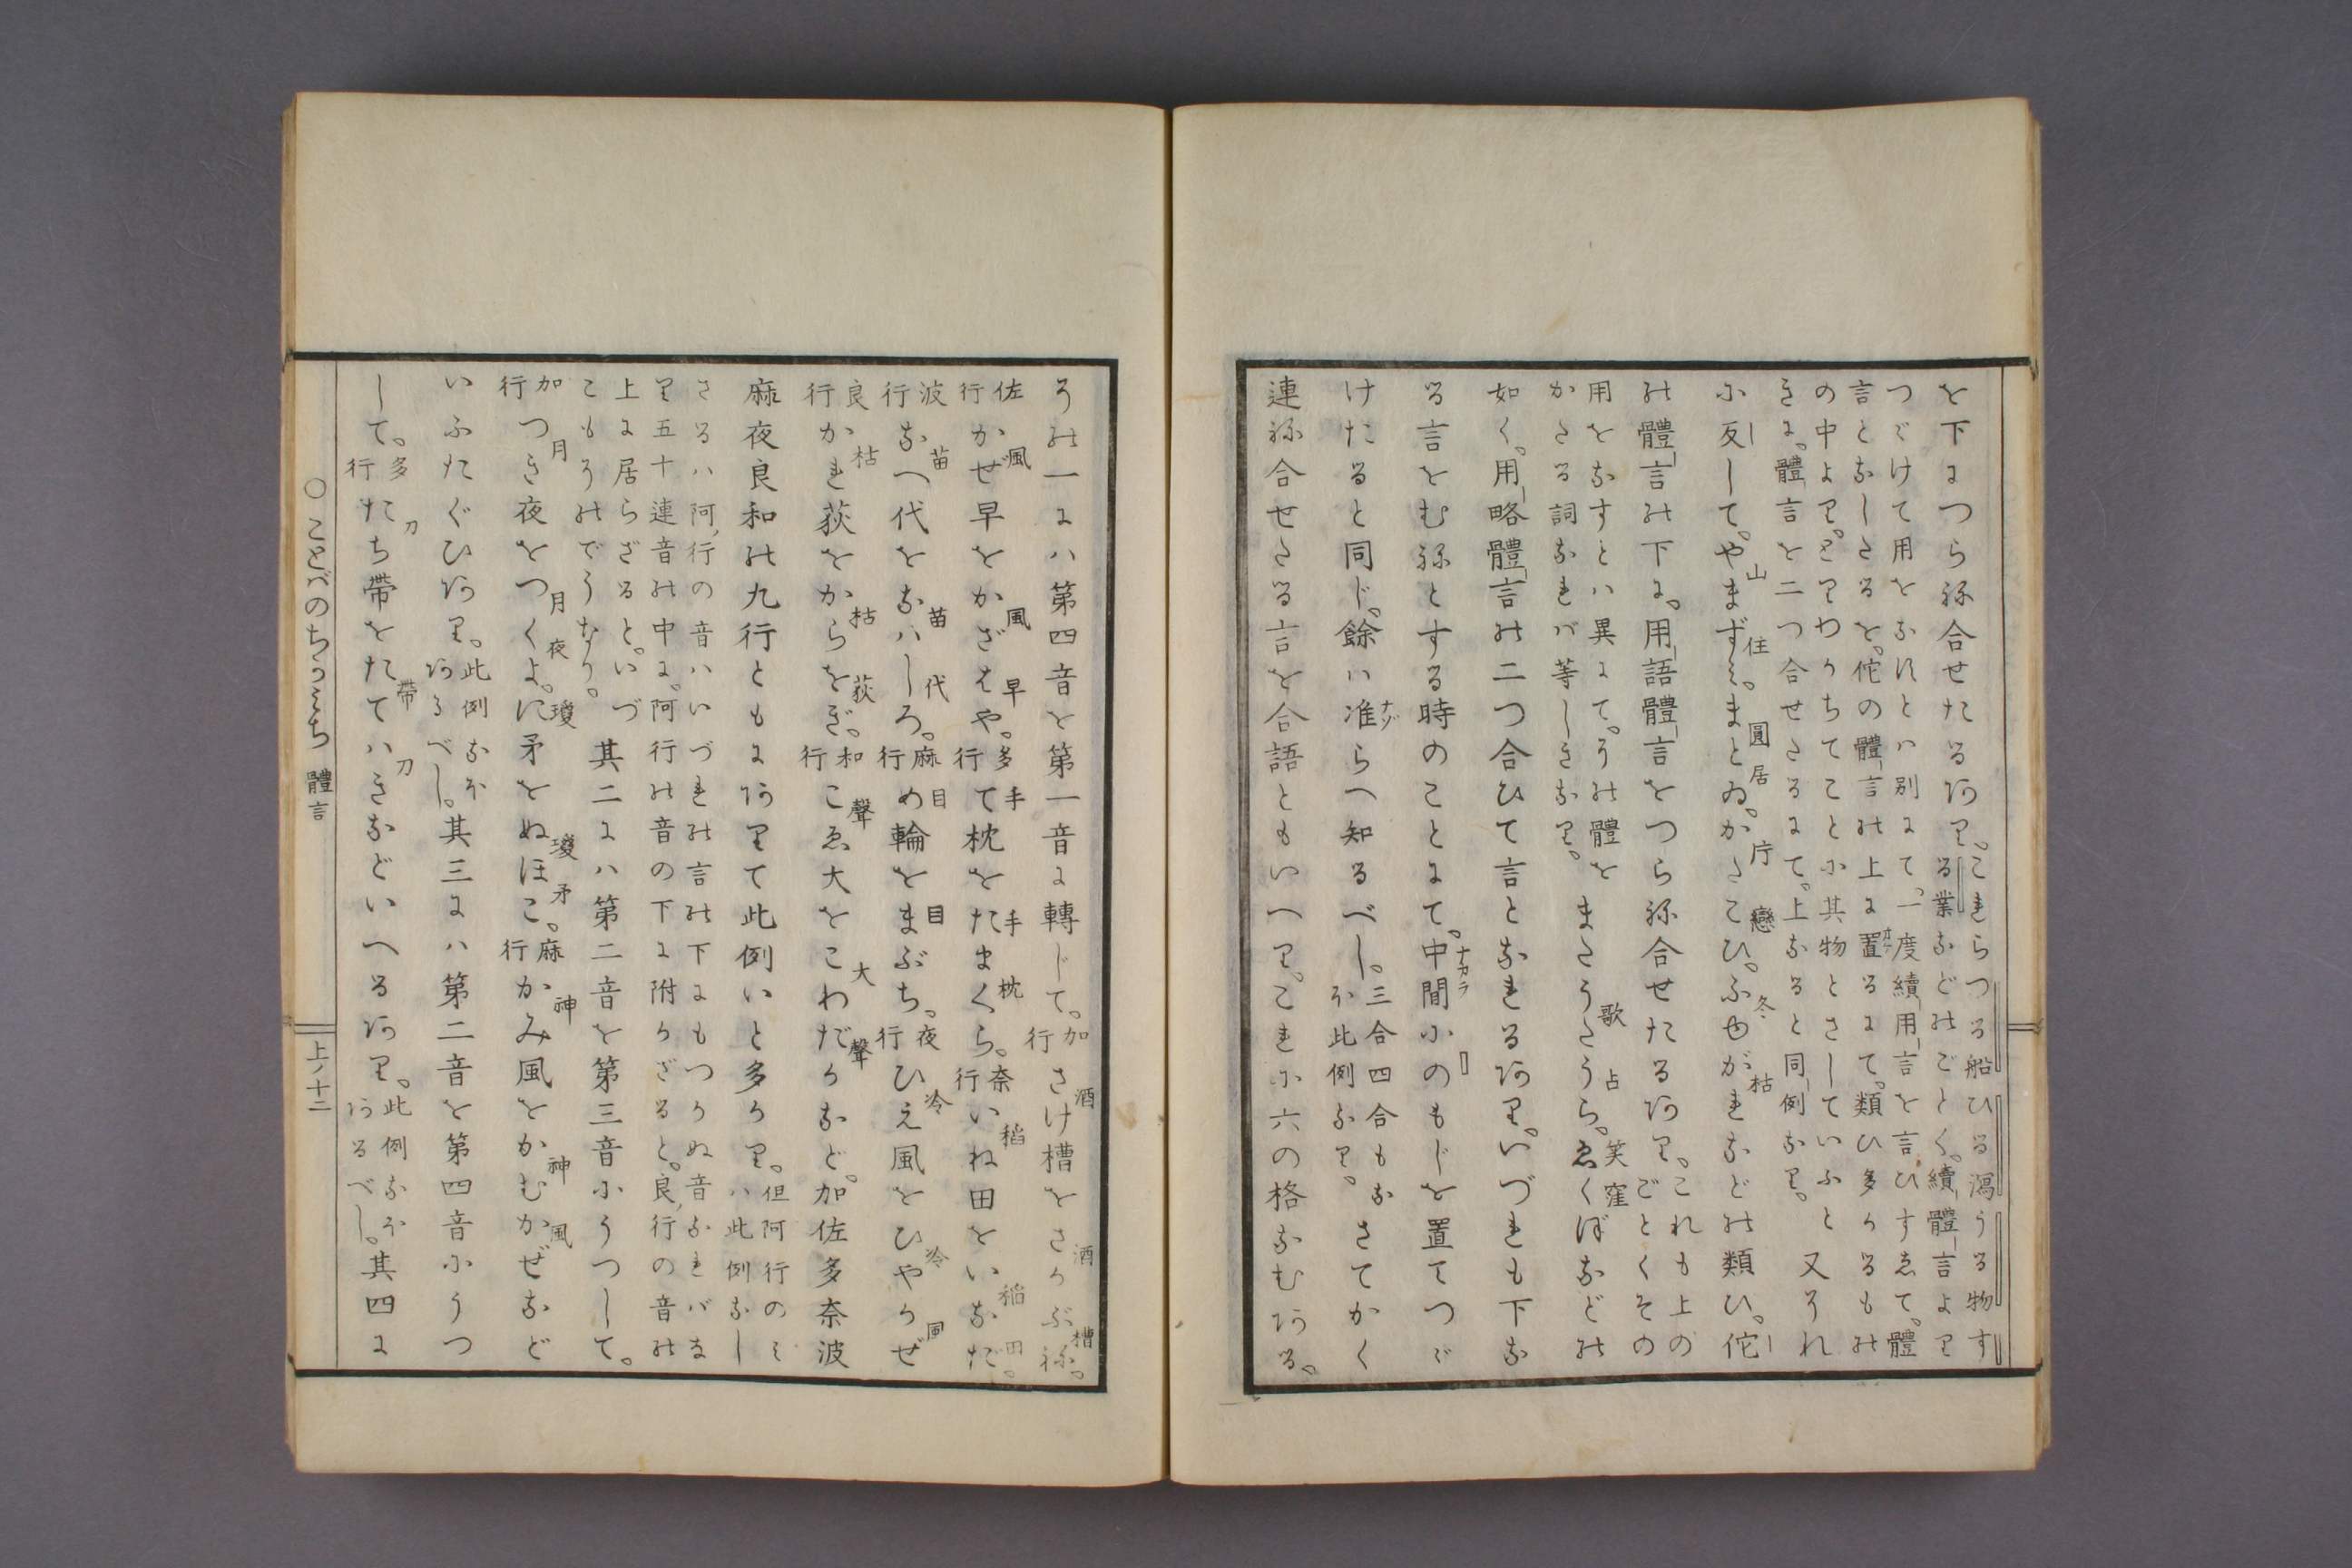 を下につらね合せたるあり。これらつる船ひる潟うる物す
る業などのごとく。續體言より
つゞけて用をなすとは別にて。一度續用言を言ひすゑて。體
言となしたるを。佗の體言の上に置るにて。類ひ多かるもの
の中より。とりわかちてことに其物とさしていふと
きに。體言を二つ合せたるにて。上なると同例なり。
又それ
に反して。やまずみ。まとゐ。かたこひ。ふゆがれなどの類ひ。佗
山 住 圓居 片戀 冬枯
の體言の下に。用語體言をつらね合せたるあり。これも上の
ごとくその
用をなすとは異にて。その體を
かたる詞なれば等しきなり。
またうたうら。ゑくぼなどの
歌占 笑窪
如く。用略體言の二つ合ひて言となれるあり。いづれも下な
る言をむねとする時のことにて。中間にのもじを置てつゞ
ナカラ
けたると同じ。餘は准らへ知るべし。三合四合もな
ほ此例なり。
さてかく
連ね合せたる言を合語ともいへり。これに六の格なむある。
その一には第四音を第一音に轉じて。加行さけ槽をさかぶね。
酒 酒 槽
佐行かぜ早をかざはや。多行て枕をたまくら。奈行いね田をいなだ。
風 風 早 手 手 枕 稲 稲 田
波行なへ代をなはしろ。麻行め輪をまぶち。夜行ひえ風をひやかぜ
苗 苗 代 目 目 冷 冷 風
良行かれ荻をからをぎ。和行こゑ大をこわだかなど。加佐多奈波
枯 枯 荻 聲 大 聲
麻夜良和の九行ともにありて此例いと多かり。但阿行のミ
ハ此例なし
さるハ阿行の音ハいづれの言の下にもつかぬ音なれバま
り五十連音の中に。阿行の音の下に附かざると。良行の音の
上に居らざると。いづ
こもそのでうなり。
其二にハ第二音を第三音にうつして。
加行つき夜をつくよ。に矛をぬほこ。麻行かみ風をかむかぜなど
月 月 夜 瓊 瓊 矛 神 神 風
いふたぐひあり。此例なほ
あるべし。其三にハ第二音を第四音にうつ
して。多行たち帶をたてはきなどいへるあり。此例なほ
あるべし。其四に
刀 帶 刀
○ことばのちかみち 體言
上ノ十二